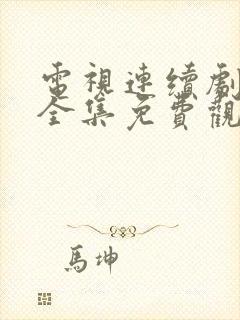 電視連續劇
全集免費觀
馬坤